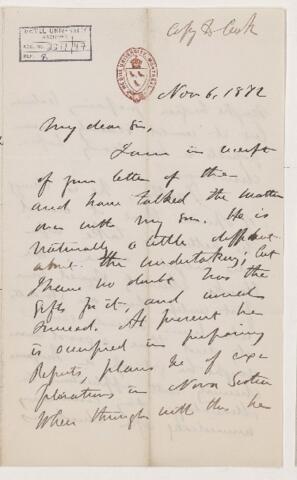 McGILL UNIVERSITY
ARCHIVES
ACC. NO.
REF.
Copy to Cook
McGILL UNIVERSITY, MONTREAL
Nov 6, 1872
My dear Sir,
I am in receipt
of your letter of the
and have talked the matter
over with my son. He is
naturally a little diffident
about the undertaking; but
I have no doubt has the
gifts for it, and would
succeed. At present he
is occupied in preparing
Reports, plans &c of ex-
plorations in Nova Scotia
When through with this he